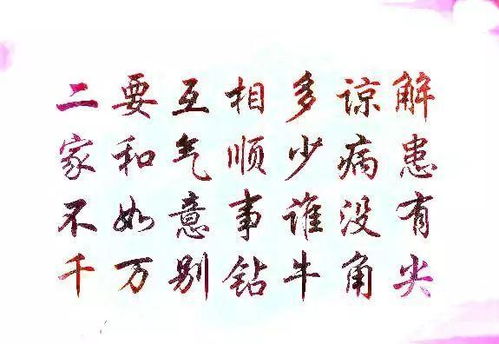 二要互相多谅解
家和气顺少病患
不如意事谁没有
千万别钻牛角尖